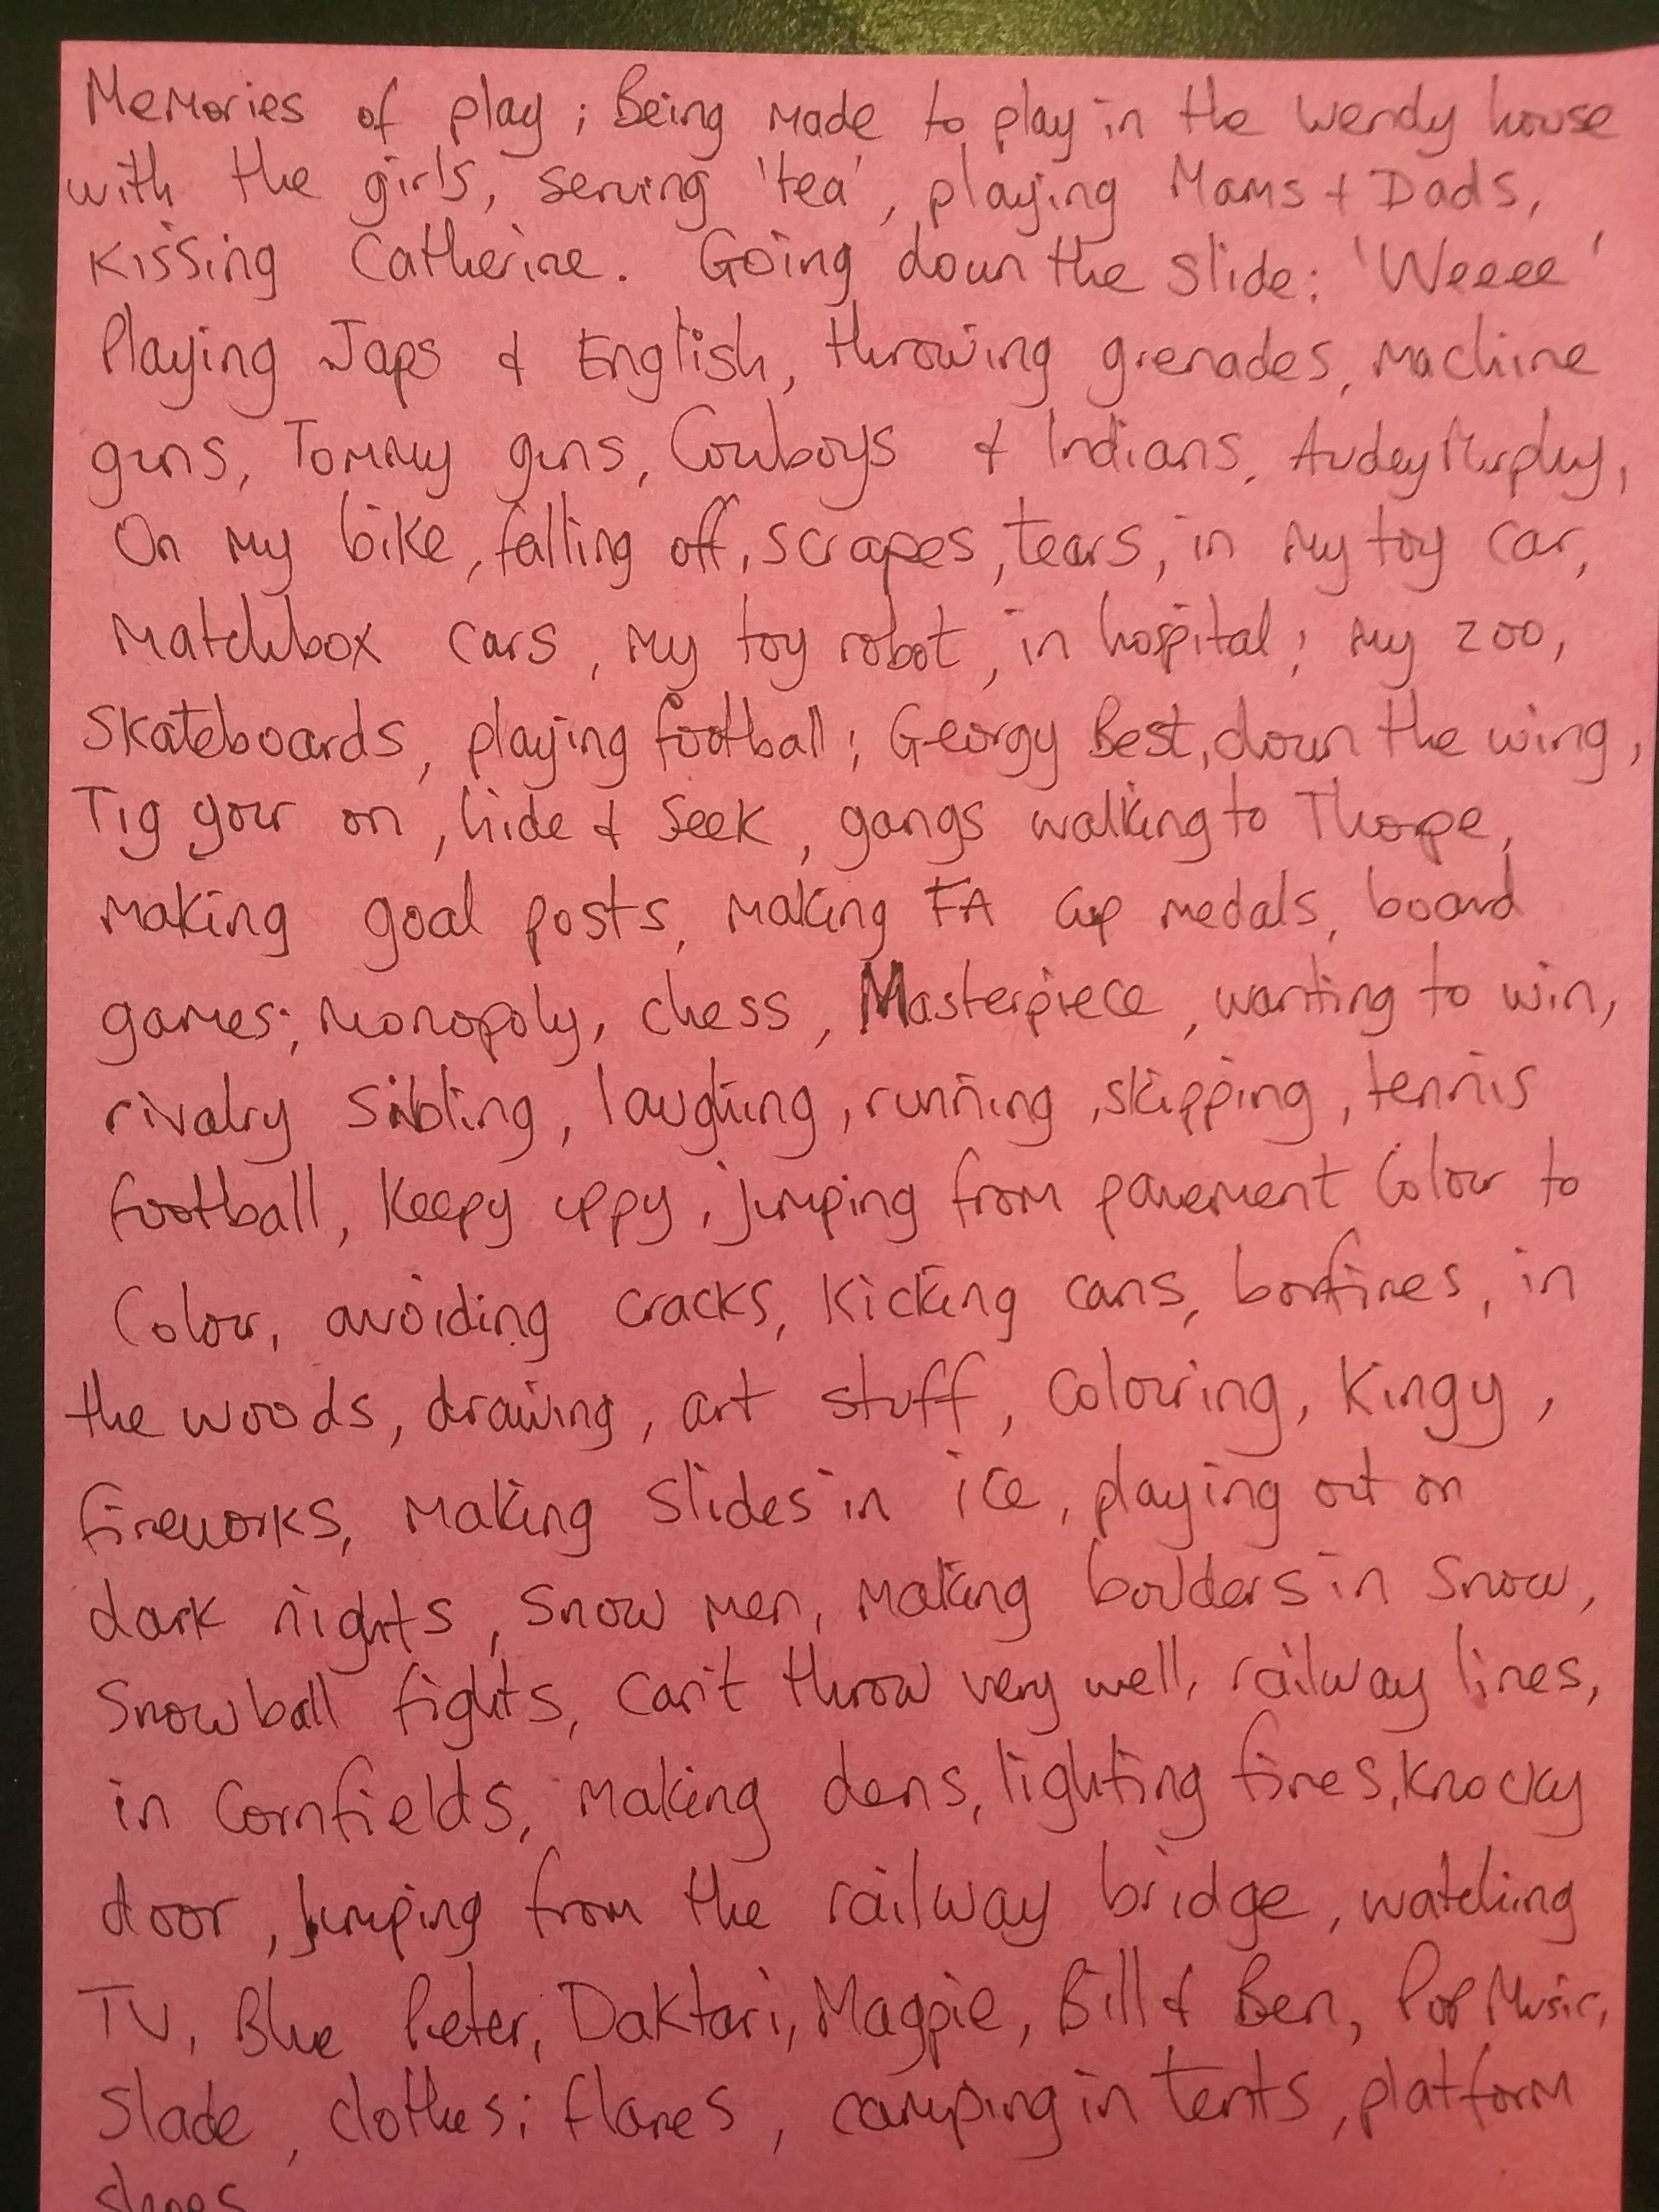 Memories of play; Being made to play in the Wendy house
with the girls, serving 'tea', playing Mams + Dads,
Kissing Catherine. Going down the slide: 'Weeee'
Playing Japs & English, throwing grenades, machine
guns, Tommy guns, Cowboys & Indians, Audey Murphy,
On my bike, falling off, scrapes, tears, in my toy car,
Matchbox cars, my toy robot, in hospital; my zoo,
Skateboards, playing football; Georgy Best, down the wing,
Tig your on, hide & Seek, gangs walking to Thorpe,
making goal posts, making FA Cup medals, board
games; monopoly, chess, Masterpiece, wanting to win,
rivalry sibling, laughing, running, skipping, tennis
football, Keepy uppy, jumping from pavement Colour to
Colour, avoiding cracks, Kicking cans, bonfires, in
the woods, drawing, art stuff, Colouring, Kingy,
fireworks, making slides in ice, playing out on
dark nights, snow men, making boulders in snow,
Snowball fights, can't throw very well, railway lines,
in Cornfields, making dens, lighting fires, Knocky
door, jumping from the railway bridge, watching
TV, Blue Peter, Daktari, Magpie, Bill & Ben, Pop Music,
Slade, clothes; flares, camping in tents, platform